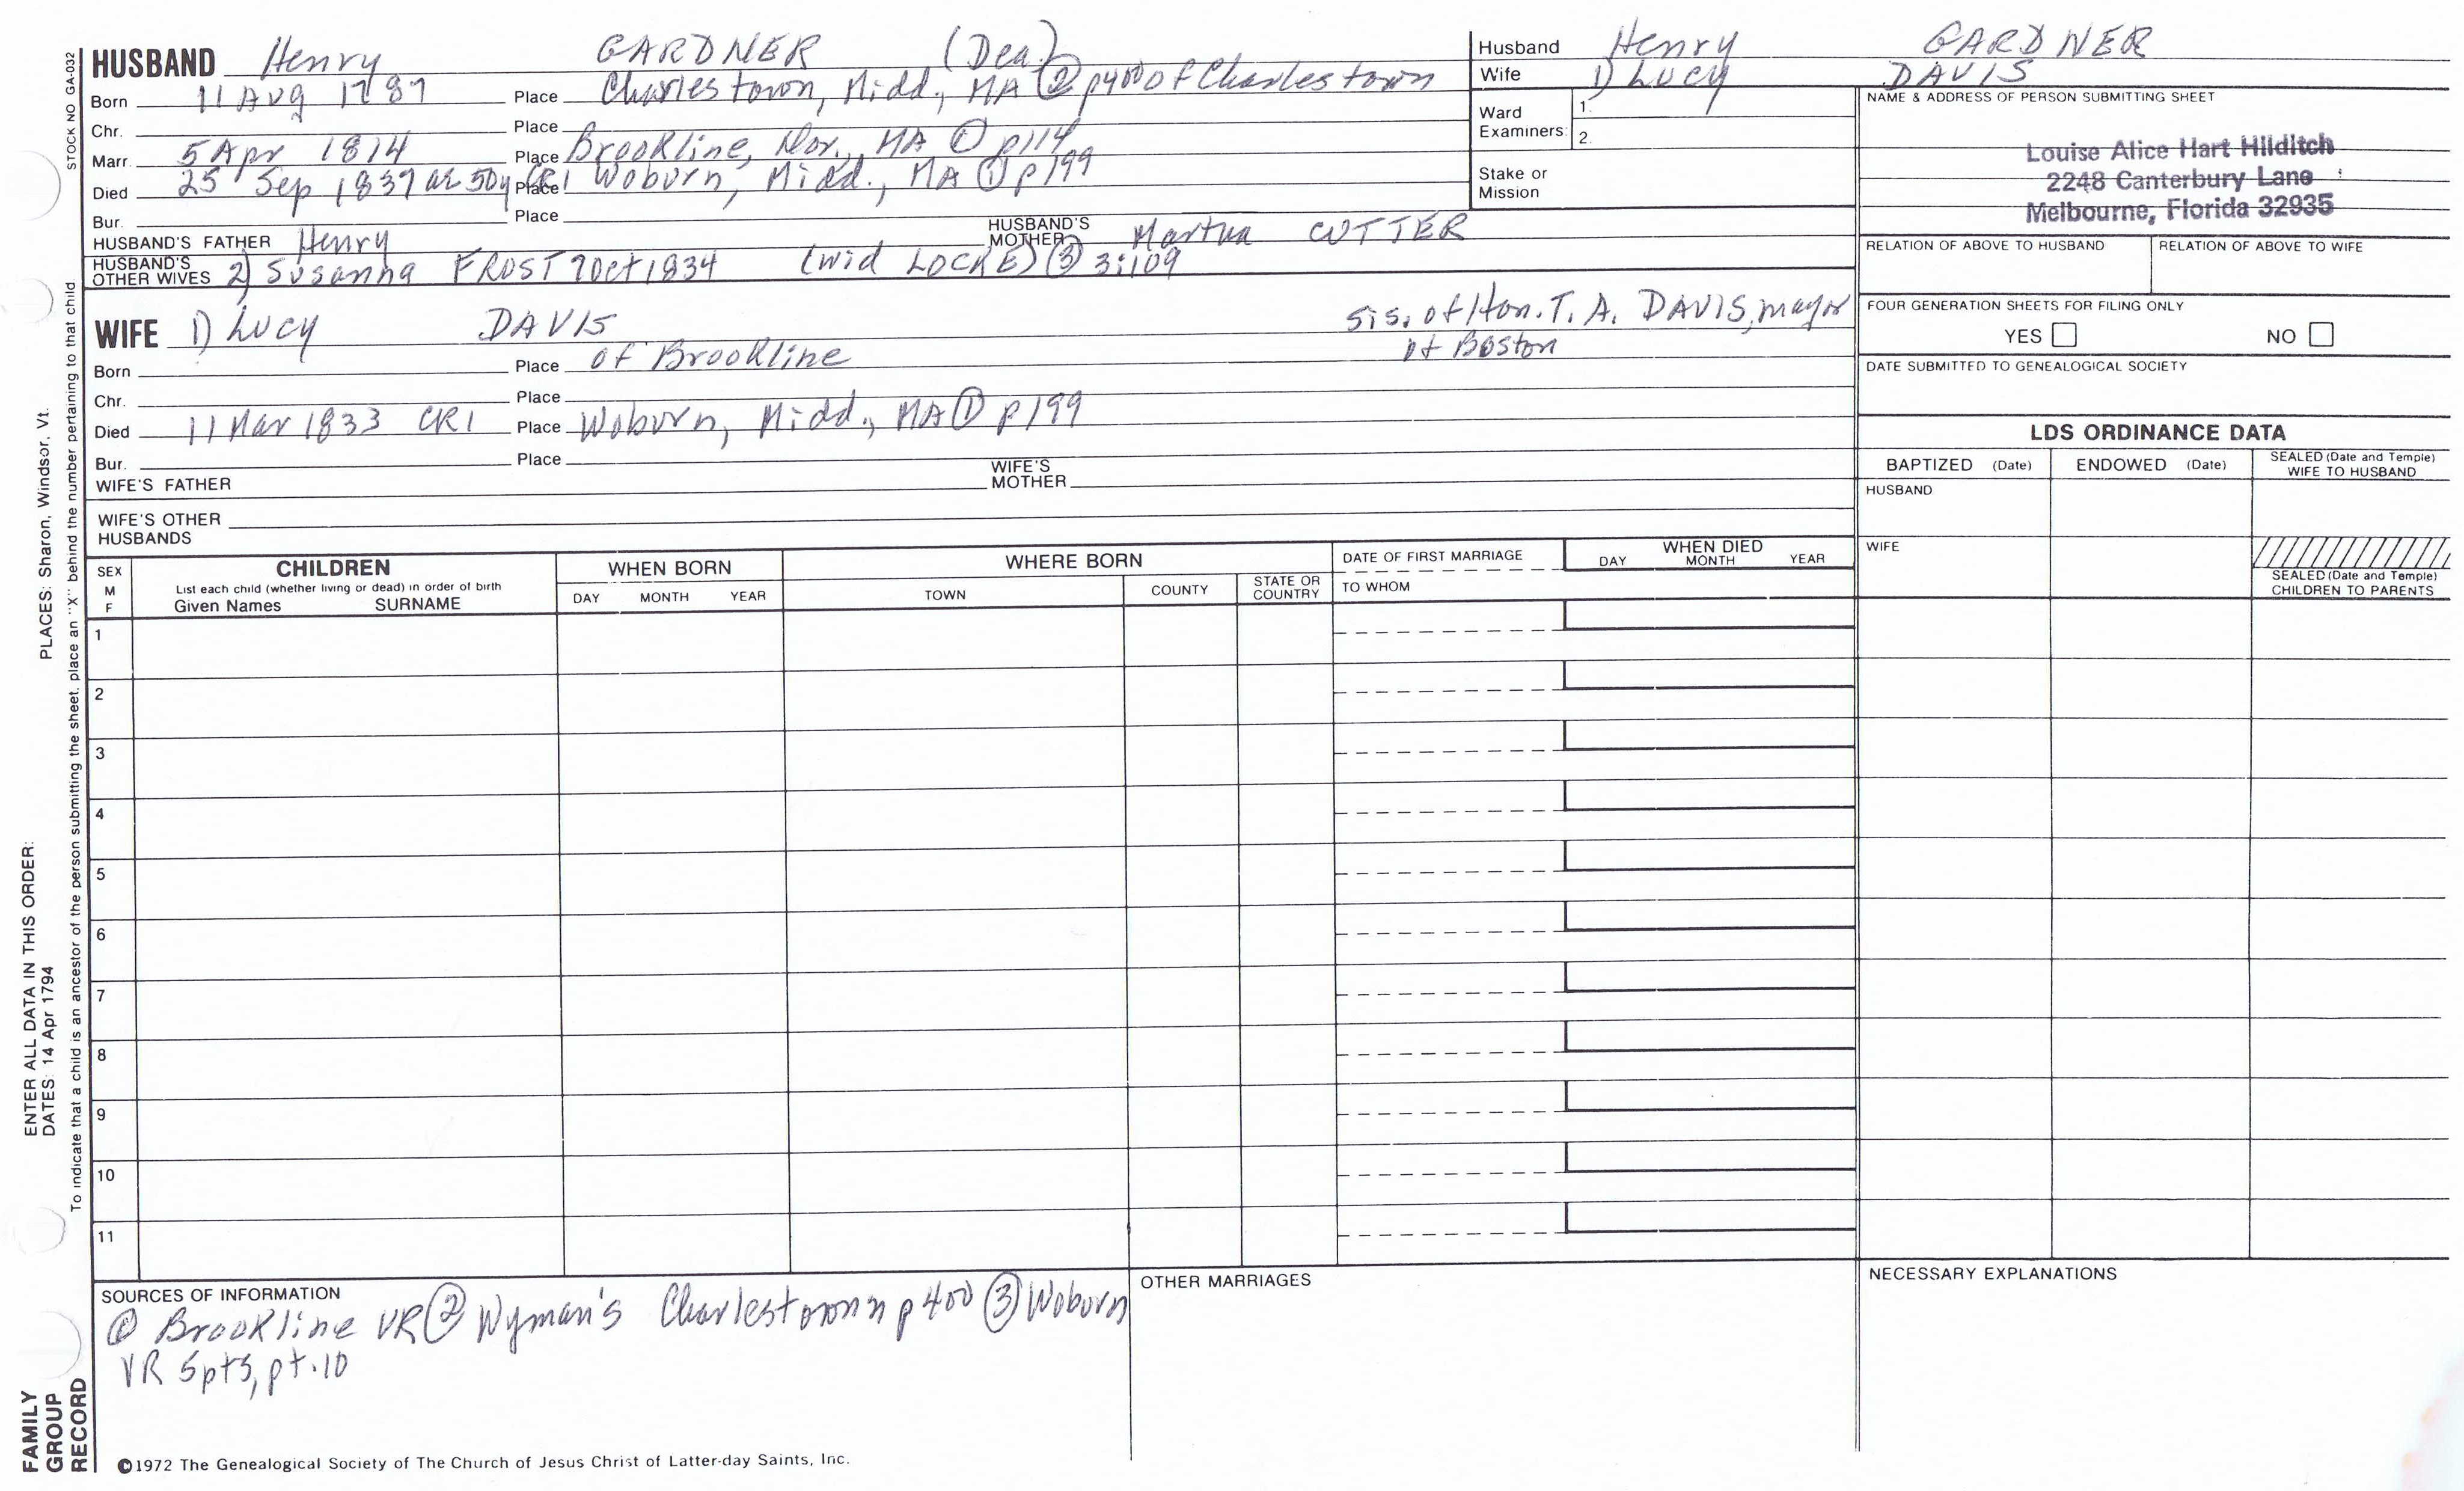 HUSBAND Henry GARDNER (Dea.)
Born 11 Aug 1787 Place Charlestown, Midd., MA ② p400 of Charlestown
Chr. Place
Marr. 5 Apr 1814 Place Brookline, Nor., MA ① p114
Died 25 Sep 1837 ae 50y CR1 Place Woburn, Midd., MA ① p199
Bur. Place
HUSBAND'S FATHER Henry HUSBAND'S MOTHER Martha CUTTER
HUSBAND'S OTHER WIVES 2) Susanna FROST 7 Oct 1834 (wid LOCKE) ③ 3:109
WIFE 1) Lucy DAVIS sis. of Hon. T. A. DAVIS, mayor
of Boston
Born Place of Brookline
Chr. Place
Died 11 Mar 1833 CR1 Place Woburn, Midd., MA ① p199
Bur. Place
WIFE'S FATHER WIFE'S MOTHER
WIFE'S OTHER HUSBANDS
Husband Henry GARDNER
Wife 1) Lucy DAVIS
Ward Examiners: 1. 2.
Stake or Mission
NAME & ADDRESS OF PERSON SUBMITTING SHEET
Louise Alice Hart Hilditch
2248 Canterbury Lane
Melbourne, Florida 32935
RELATION OF ABOVE TO HUSBAND RELATION OF ABOVE TO WIFE
FOUR GENERATION SHEETS FOR FILING ONLY
YES NO
DATE SUBMITTED TO GENEALOGICAL SOCIETY
LDS ORDINANCE DATA
BAPTIZED (Date) ENDOWED (Date) SEALED (Date and Temple) WIFE TO HUSBAND
HUSBAND
WIFE
SEALED (Date and Temple) CHILDREN TO PARENTS
SEX M F
CHILDREN
List each child (whether living or dead) in order of birth
Given Names SURNAME
WHEN BORN
DAY MONTH YEAR
WHERE BORN
TOWN COUNTY STATE OR COUNTRY
DATE OF FIRST MARRIAGE
TO WHOM
WHEN DIED
DAY MONTH YEAR
1
2
3
4
5
6
7
8
9
10
11
SOURCES OF INFORMATION
① Brookline VR ② Wyman's Charlestown p400 ③ Woburn
VR 5pts, pt.10
OTHER MARRIAGES
NECESSARY EXPLANATIONS
©1972 The Genealogical Society of The Church of Jesus Christ of Latter-day Saints, Inc.
FAMILY
GROUP
RECORD
ENTER ALL DATA IN THIS ORDER:
DATES: 14 Apr 1794 PLACES: Sharon, Windsor, Vt.
To indicate that a child is an ancestor of the person submitting the sheet, place an "X" behind the number pertaining to that child
STOCK NO GA-032